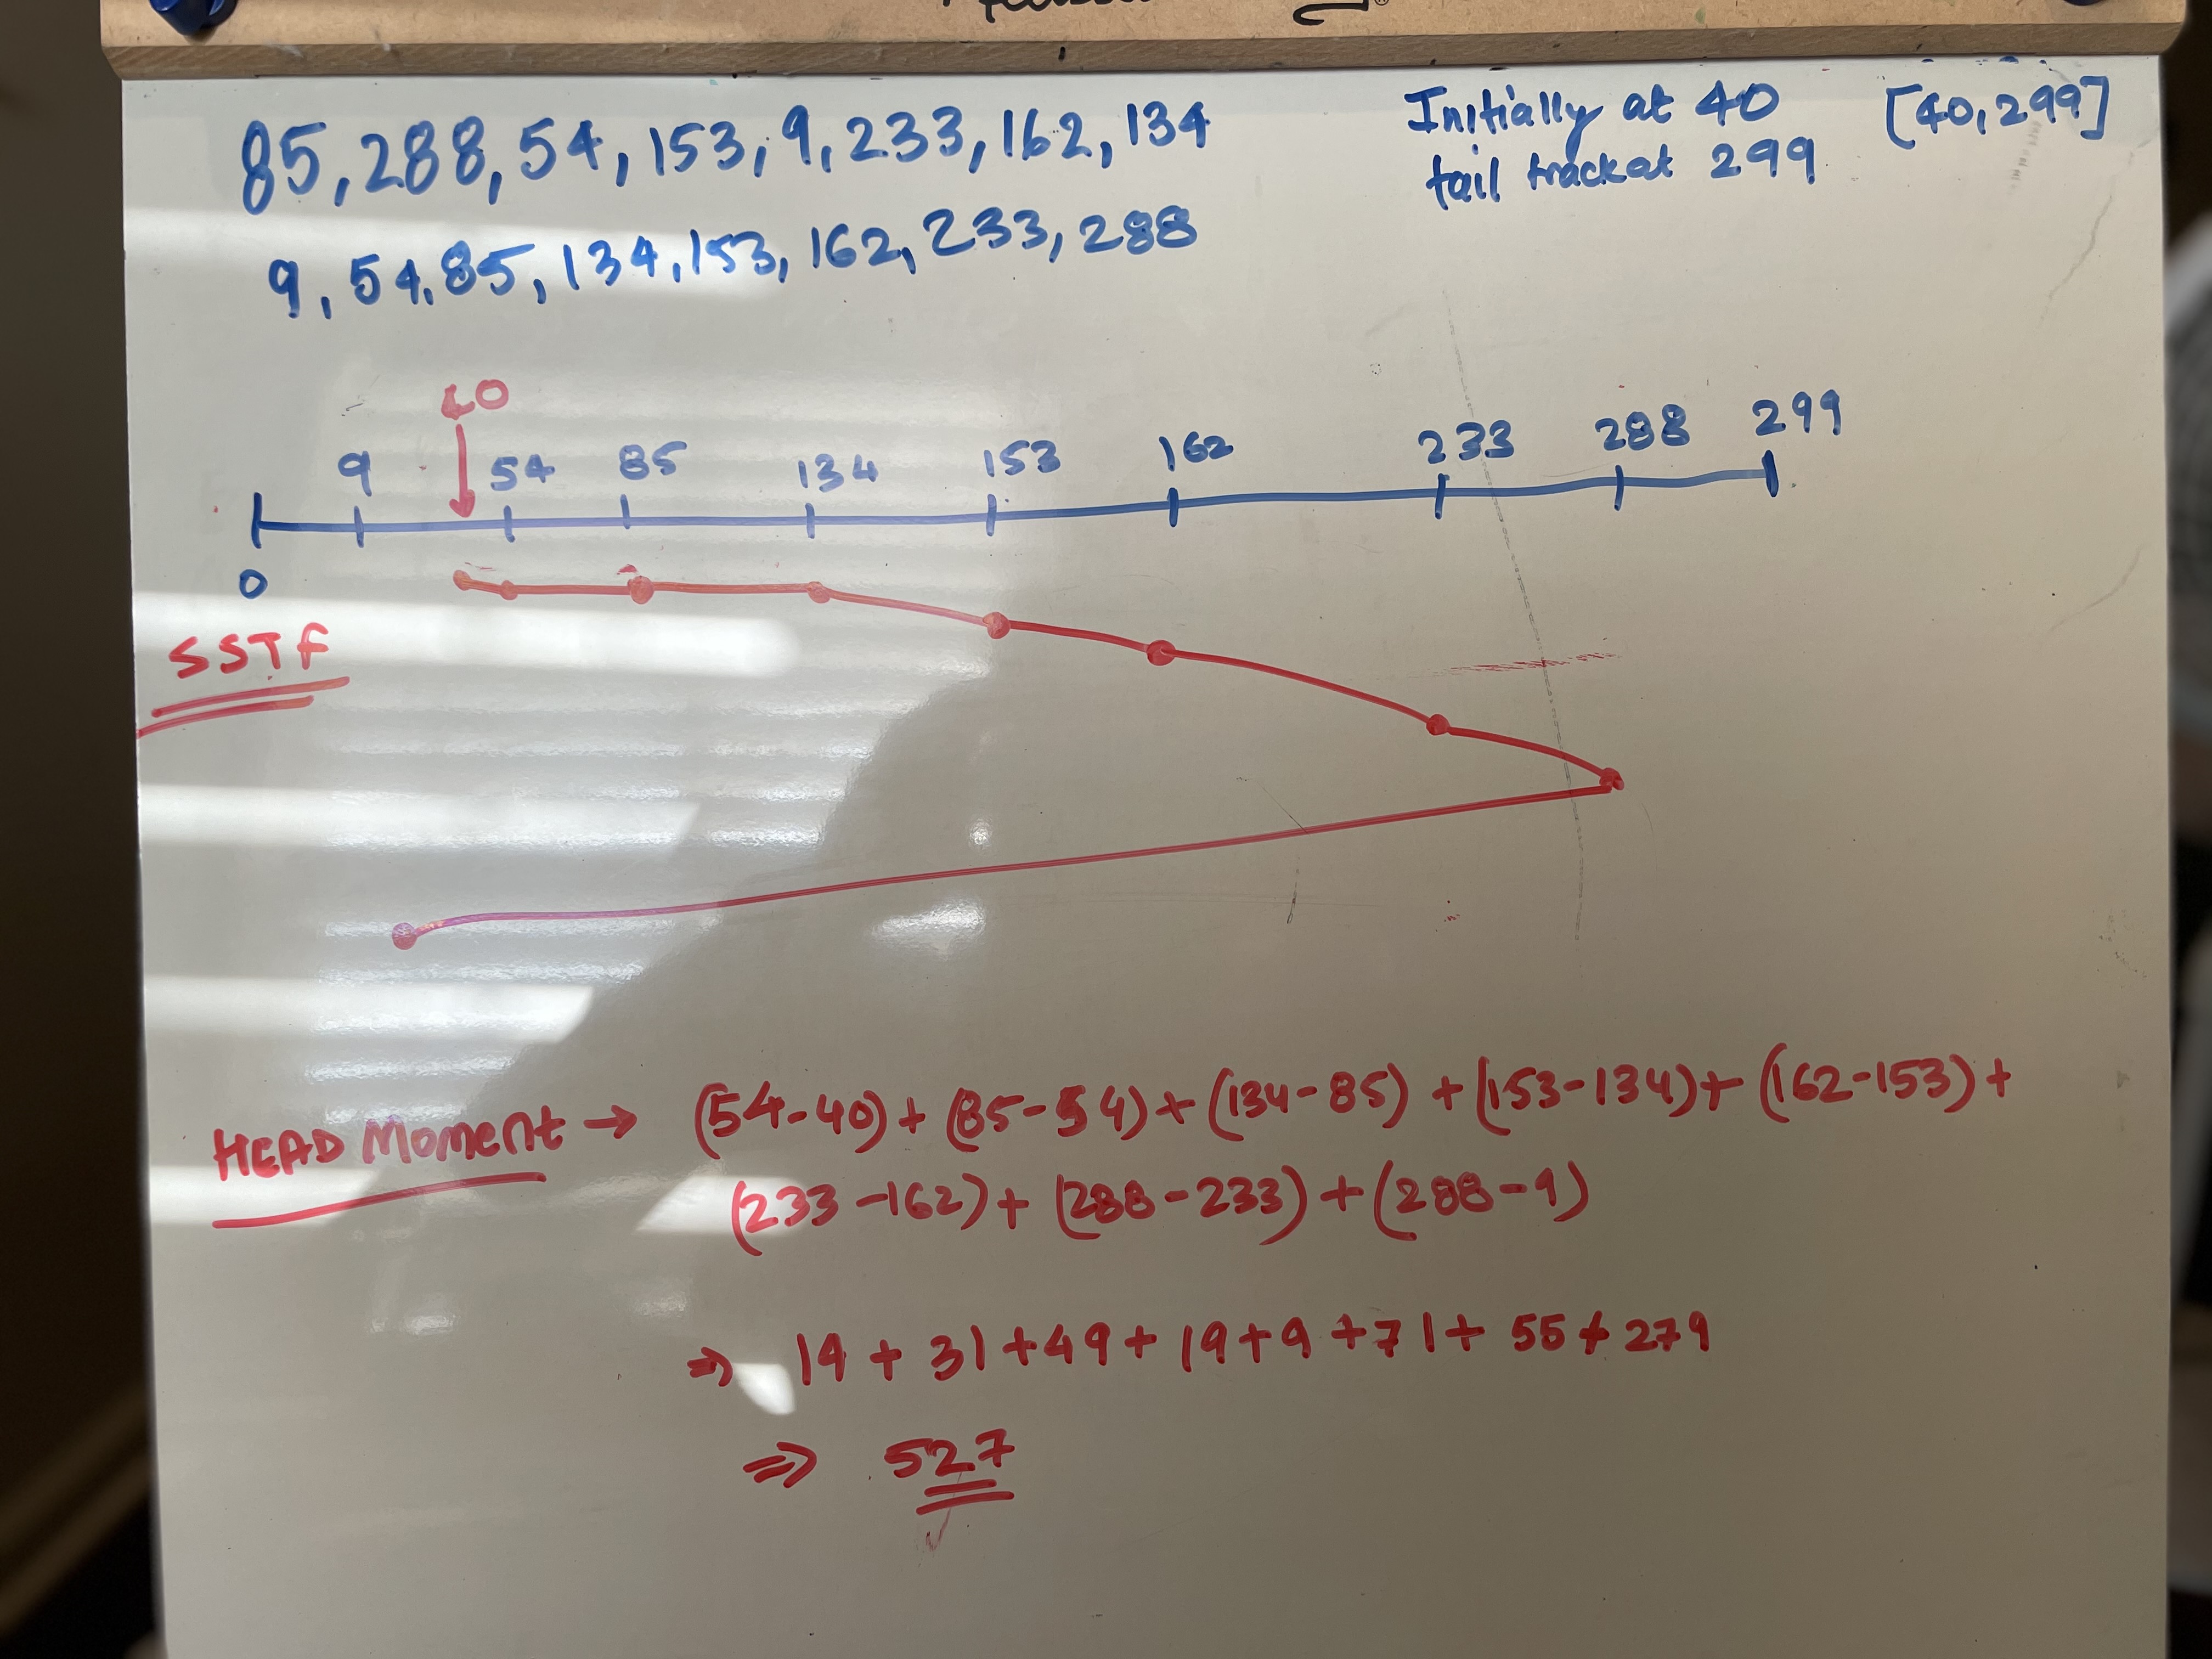 85, 288, 54, 153, 9, 233, 162, 134
9, 54, 85, 134, 153, 162, 233, 288
Initially at 40 [40, 299]
tail track at 299
40
9 54 85 134 153 162 233 288 299
0
SSTF
HEAD Moment → (54-40) + (85-54) + (134-85) + (153-134) + (162-153) +
(233-162) + (288-233) + (288-9)
⇒ 14 + 31 + 49 + 19 + 9 + 71 + 55 + 279
⇒ 527